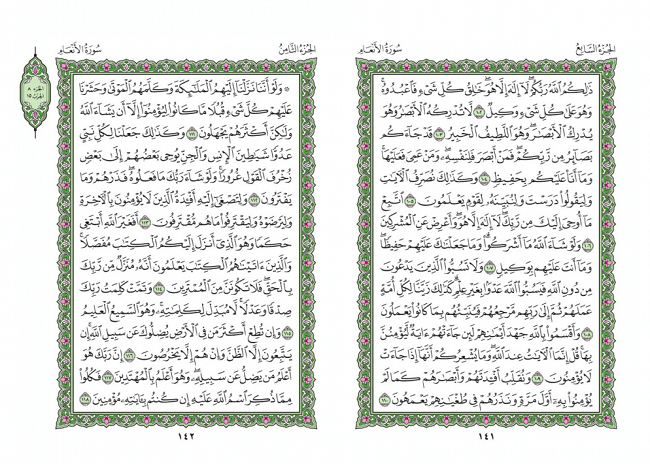 الجزء السابع
سورة الأنعام
ذَٰلِكُمُ ٱللَّهُ رَبُّكُمْ ۖ لَآ إِلَٰهَ إِلَّا هُوَ ۖ خَٰلِقُ كُلِّ شَىْءٍ فَٱعْبُدُوهُ ۚ
وَهُوَ عَلَىٰ كُلِّ شَىْءٍ وَكِيلٌ ١٠٢ لَّا تُدْرِكُهُ ٱلْأَبْصَٰرُ وَهُوَ
يُدْرِكُ ٱلْأَبْصَٰرَ ۖ وَهُوَ ٱللَّطِيفُ ٱلْخَبِيرُ ١٠٣ قَدْ جَآءَكُم
بَصَآئِرُ مِن رَّبِّكُمْ ۖ فَمَنْ أَبْصَرَ فَلِنَفْسِهِۦ ۖ وَمَنْ عَمِىَ فَعَلَيْهَا ۚ
وَمَآ أَنَا۠ عَلَيْكُم بِحَفِيظٍ ١٠٤ وَكَذَٰلِكَ نُصَرِّفُ ٱلْءَايَٰتِ
وَلِيَقُولُوا۟ دَرَسْتَ وَلِنُبَيِّنَهُۥ لِقَوْمٍ يَعْلَمُونَ ١٠٥ ٱتَّبِعْ
مَآ أُوحِىَ إِلَيْكَ مِن رَّبِّكَ ۖ لَآ إِلَٰهَ إِلَّا هُوَ ۖ وَأَعْرِضْ عَنِ ٱلْمُشْرِكِينَ
١٠٦ وَلَوْ شَآءَ ٱللَّهُ مَآ أَشْرَكُوا۟ ۗ وَمَا جَعَلْنَٰكَ عَلَيْهِمْ حَفِيظًا ۖ
وَمَآ أَنتَ عَلَيْهِم بِوَكِيلٍ ١٠٧ وَلَا تَسُبُّوا۟ ٱلَّذِينَ يَدْعُونَ
مِن دُونِ ٱللَّهِ فَيَسُبُّوا۟ ٱللَّهَ عَدْوًۢا بِغَيْرِ عِلْمٍ ۗ كَذَٰلِكَ زَيَّنَّا لِكُلِّ أُمَّةٍ
عَمَلَهُمْ ثُمَّ إِلَىٰ رَبِّهِم مَّرْجِعُهُمْ فَيُنَبِّئُهُم بِمَا كَانُوا۟ يَعْمَلُونَ
١٠٨ وَأَقْسَمُوا۟ بِٱللَّهِ جَهْدَ أَيْمَٰنِهِمْ لَئِن جَآءَتْهُمْ ءَايَةٌ لَّيُؤْمِنُنَّ
بِهَا ۚ قُلْ إِنَّمَا ٱلْءَايَٰتُ عِندَ ٱللَّهِ ۖ وَمَا يُشْعِرُكُمْ أَنَّهَآ إِذَا جَآءَتْ
لَا يُؤْمِنُونَ ١٠٩ وَنُقَلِّبُ أَفْـِٔدَتَهُمْ وَأَبْصَٰرَهُمْ كَمَا لَمْ
يُؤْمِنُوا۟ بِهِۦٓ أَوَّلَ مَرَّةٍ وَنَذَرُهُمْ فِى طُغْيَٰنِهِمْ يَعْمَهُونَ ١١٠
١٤١
الجزء الثامن
سورة الأنعام
۞ وَلَوْ أَنَّنَا نَزَّلْنَآ إِلَيْهِمُ ٱلْمَلَٰٓئِكَةَ وَكَلَّمَهُمُ ٱلْمَوْتَىٰ وَحَشَرْنَا
عَلَيْهِمْ كُلَّ شَىْءٍ قُبُلًا مَّا كَانُوا۟ لِيُؤْمِنُوٓا۟ إِلَّآ أَن يَشَآءَ ٱللَّهُ
وَلَٰكِنَّ أَكْثَرَهُمْ يَجْهَلُونَ ١١١ وَكَذَٰلِكَ جَعَلْنَا لِكُلِّ نَبِىٍّ
عَدُوًّا شَيَٰطِينَ ٱلْإِنسِ وَٱلْجِنِّ يُوحِى بَعْضُهُمْ إِلَىٰ بَعْضٍ
زُخْرُفَ ٱلْقَوْلِ غُرُورًا ۚ وَلَوْ شَآءَ رَبُّكَ مَا فَعَلُوهُ ۖ فَذَرْهُمْ وَمَا
يَفْتَرُونَ ١١٢ وَلِتَصْغَىٰٓ إِلَيْهِ أَفْـِٔدَةُ ٱلَّذِينَ لَا يُؤْمِنُونَ بِٱلْءَاخِرَةِ
وَلِيَرْضَوْهُ وَلِيَقْتَرِفُوا۟ مَا هُم مُّقْتَرِفُونَ ١١٣ أَفَغَيْرَ ٱللَّهِ أَبْتَغِى
حَكَمًا وَهُوَ ٱلَّذِىٓ أَنزَلَ إِلَيْكُمُ ٱلْكِتَٰبَ مُفَصَّلًا ۚ
وَٱلَّذِينَ ءَاتَيْنَٰهُمُ ٱلْكِتَٰبَ يَعْلَمُونَ أَنَّهُۥ مُنَزَّلٌ مِّن رَّبِّكَ
بِٱلْحَقِّ ۖ فَلَا تَكُونَنَّ مِنَ ٱلْمُمْتَرِينَ ١١٤ وَتَمَّتْ كَلِمَتُ رَبِّكَ
صِدْقًا وَعَدْلًا ۚ لَّا مُبَدِّلَ لِكَلِمَٰتِهِۦ ۚ وَهُوَ ٱلسَّمِيعُ ٱلْعَلِيمُ
١١٥ وَإِن تُطِعْ أَكْثَرَ مَن فِى ٱلْأَرْضِ يُضِلُّوكَ عَن سَبِيلِ ٱللَّهِ ۚ إِن
يَتَّبِعُونَ إِلَّا ٱلظَّنَّ وَإِنْ هُمْ إِلَّا يَخْرُصُونَ ١١٦ إِنَّ رَبَّكَ هُوَ
أَعْلَمُ مَن يَضِلُّ عَن سَبِيلِهِۦ ۖ وَهُوَ أَعْلَمُ بِٱلْمُهْتَدِينَ ١١٧ فَكُلُوا۟
مِمَّا ذُكِرَ ٱسْمُ ٱللَّهِ عَلَيْهِ إِن كُنتُم بِـَٔايَٰتِهِۦ مُؤْمِنِينَ ١١٨
١٤٢
الجزء ٨
الحزب ١٥